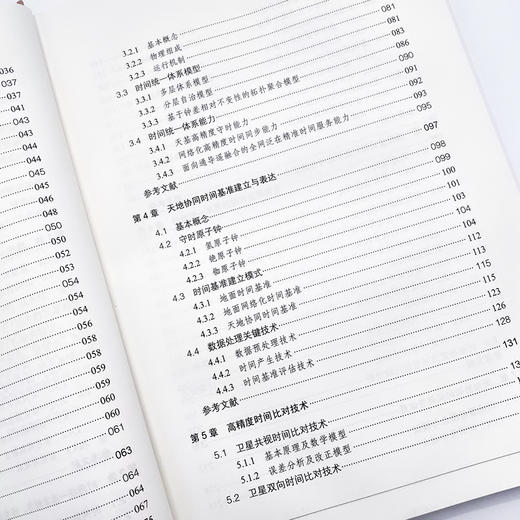 036
037
037
041
046
046
048
050
050
052
054
054
054
055
055
058
058
059
060
060
061
063
063
3.2.1 基本概念 081
3.2.2 物理组成 081
3.2.3 运行机制 083
3.3 时间统一体系模型 086
3.3.1 多层体系模型
3.3.2 分层自治模型
3.3.3 基于钟差相对不变性的拓扑聚合模型
3.4 时间统一体系能力
3.4.1 天基高精度守时能力
3.4.2 网络化高精度时间同步能力
3.4.3 面向通导遥融合的全网泛在精准时间服务能力 095
参考文献 097
第4章 天地协同时间基准建立与表达 098
4.1 基本概念 099
4.2 守时原子钟 100
4.2.1 氢原子钟 100
4.2.2 铯原子钟 101
4.2.3 铷原子钟 103
4.3 时间基准建立模式 104
4.3.1 地面时间基准 104
4.3.2 地面网络化时间基准 112
4.3.3 天地协同时间基准
4.4 数据处理关键技术 115
4.4.1 数据预处理技术 115
4.4.2 时间产生技术
4.4.3 时间基准评估技术 126
参考文献 128
第5章 高精度时间比对技术 131
5.1 卫星共视时间比对技术
5.1.1 基本原理及数学模型
5.1.2 误差分析及改正模型
5.2 卫星双向时间比对技术